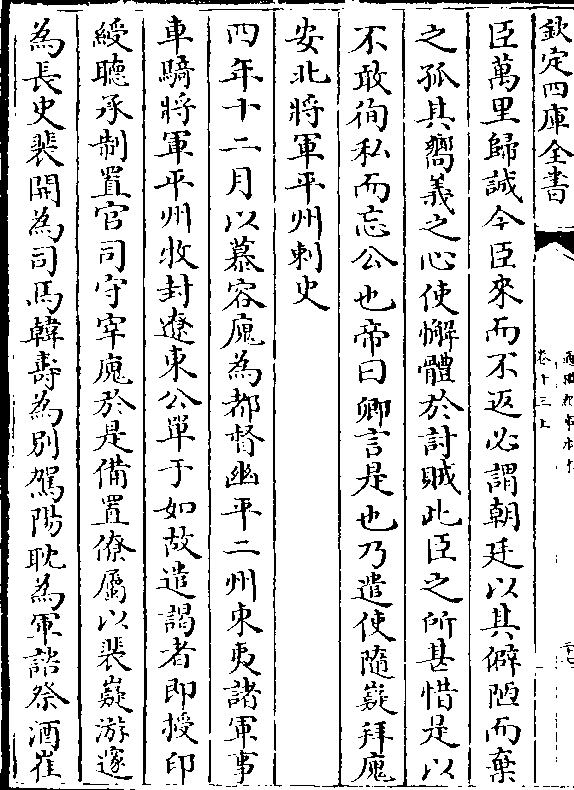 欽定四庫全書
卷十三上
臣萬里歸誠今臣來而不返必謂朝廷以其僻陋而棄
之孤其嚮義之心使懈體於討賊此臣之所甚惜是以
不敢徇私而忘公也帝曰卿言是也乃遣使隨嶷拜廆
安北將軍平州刺史
四年十二月以慕容廆為都督幽平二州東夷諸軍事
車騎將軍平州牧封遼東公單于如故遣謁者即授印
綬聽承制置官司守宰廆於是備置僚屬以裴嶷游邃
為長史裴開為司馬韓壽為別駕陽耽為軍諮祭酒崔